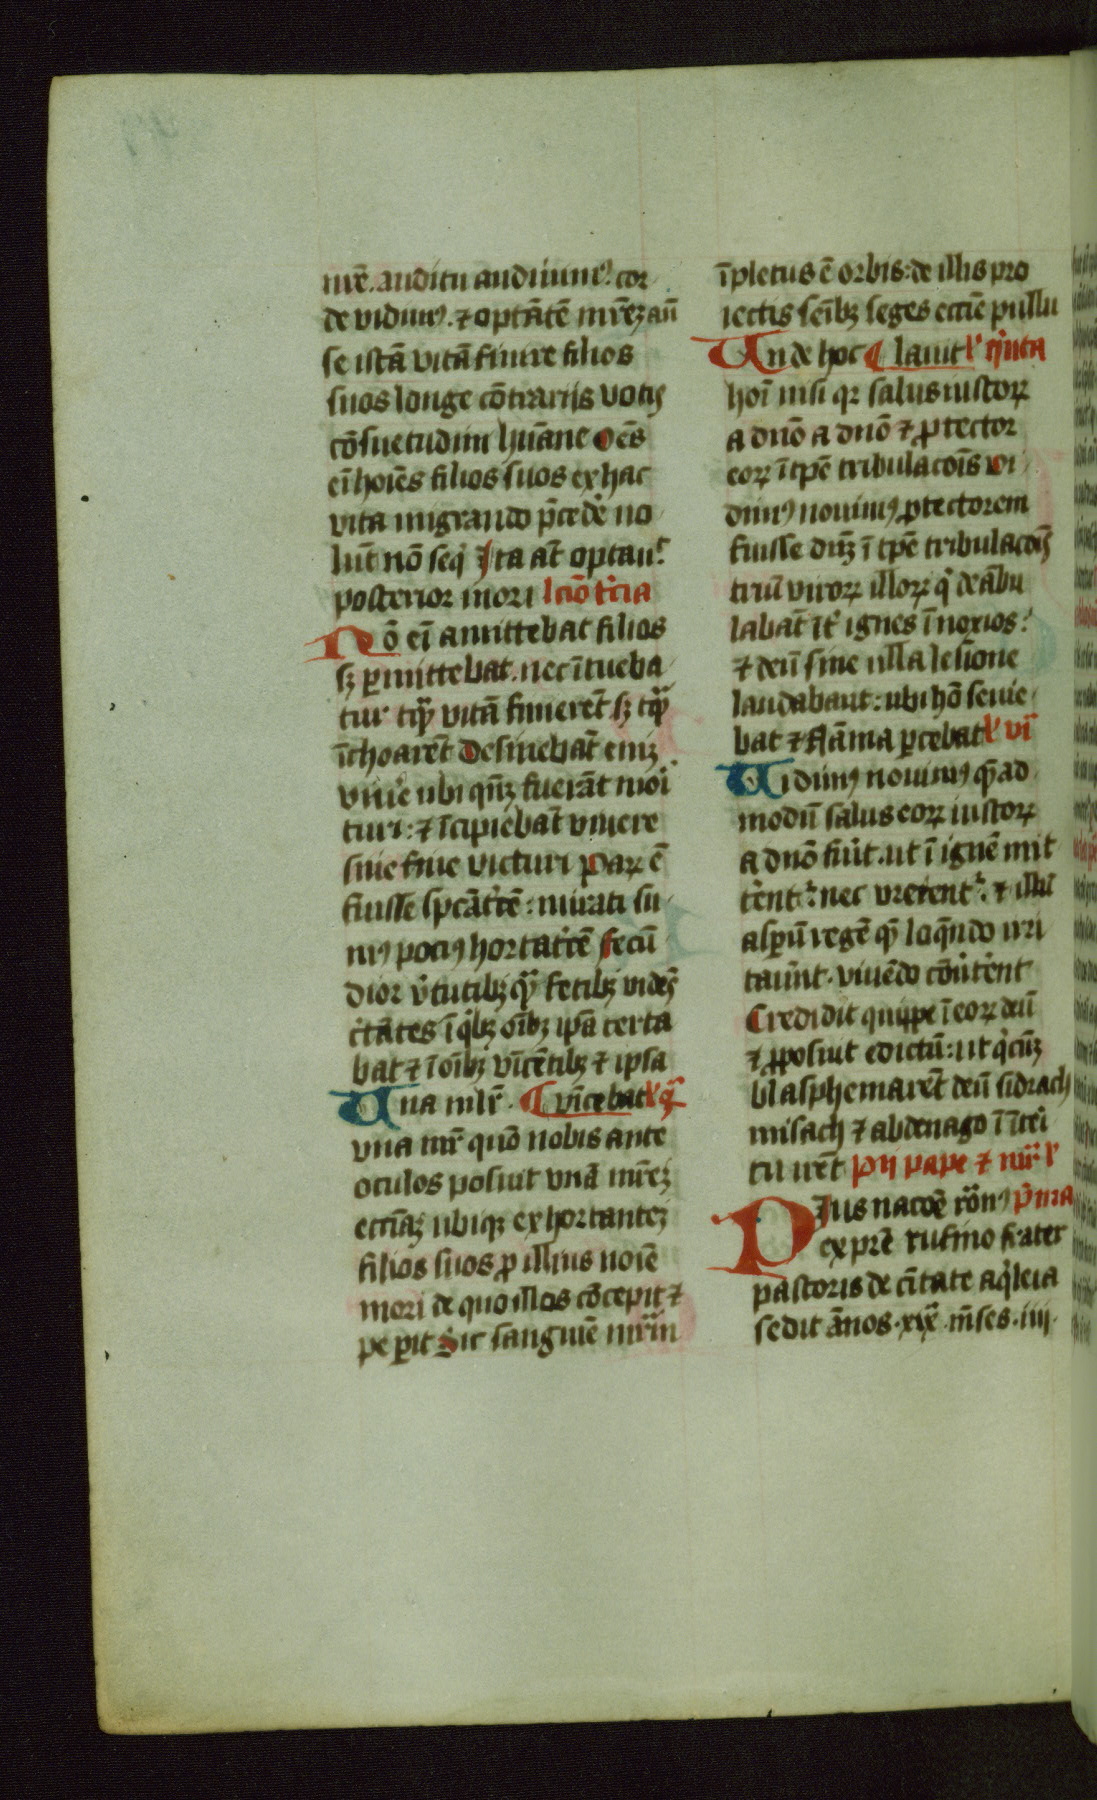 mr̄e. auditu audiuim⁹. cor
de vidim⁹. ⁊ optātē mr̄eꝫ an̄
se istā vitā finire filios
suos longe ɔ̄trarijs votis
cōsuetudini hūane oēs
eī hoīes filios suos ex hac
vita migrando p̄cedē no
lūt nō seq̇ Ita at̄ optauͬ
posterior mori lcīo t̓cia
Nō eī amittebat filios
sꝫ ꝑmittebat. nec ītueba
tur tꝙ̄ vitā finirēt sꝫ tꝙ̄
īchoarēt Desinebāt eniꝫ
viu̓e ubi qn̄ꝫ fuerāt moͥ
turi: ⁊ īcipiebāt viuere
sine fine victuri Parꝝ ē
fuisse spcātͥcē: mirati su
m⁹ poci⁹ hortatͥcē Fecū
dior v̓tutibꝫ ꝙ̄ fetibꝫ vidēs
c̓tātes ī qͥbꝫ oībꝫ ip̄a certa
bat ⁊ ī oībꝫ vīcētibꝫ ⁊ ipsa
Una mlr̄. ¶ vīcebat l̓ qͣ
vna mr̄ quō nobis ante
oculos posuit vnā mr̄eꝫ
eccīaꝫ ubiqꝫ exhortanteꝫ
filios suos ꝓ illius noīe
mori de quo illos cōcepit ⁊
peꝑit Sic sanguīe mr̄im
īpletus ē orbis: de illis pro
iectis seībꝫ seges eccīe pullu
Un de hoc ¶ lauit l̓ qͥnta
hoī nisi qꝫ salus iustoꝝ
a dn̄o a dn̄o ⁊ ꝓtector
eoꝝ ī tp̄e tribulacōis vi
dim⁹ nouim⁹ ꝓtectorem
fuisse dn̄ꝫ ī tp̄e tribulacōis
triū viroꝝ illoꝝ qͥ deābu
labāt īt̓ ignes īnoxios:
⁊ deū sine ulla lesione
laudabant: ubi hō seuie
bat ⁊ flāma ꝑcebat l̓ vī
Uidim⁹ nouim⁹ qͣ̄ad
modū salus eoꝝ iustoꝝ
a dn̄o fūit. ut ī ignē mit
t̓entͬ nec vrerentͬ. ⁊ illū
aspū regē qͣ̄ loqͣndo irri
taūnt. viuēdo cōūt̓ent
Credidit quippe ī eoꝝ deū
⁊ ꝓposuit edictū: ut qͥcūꝫ
blasphemarēt deū sidrach
misach ⁊ abdenago ī īteͥ
tū irēt Pij pape ⁊ mr̄ l̓
Pius nacōē rōn⁹ pͥma
ex pr̄e rufino frater
pastoris de cītate aqͥleia
sedit ānos. xix. mēses. iiij.